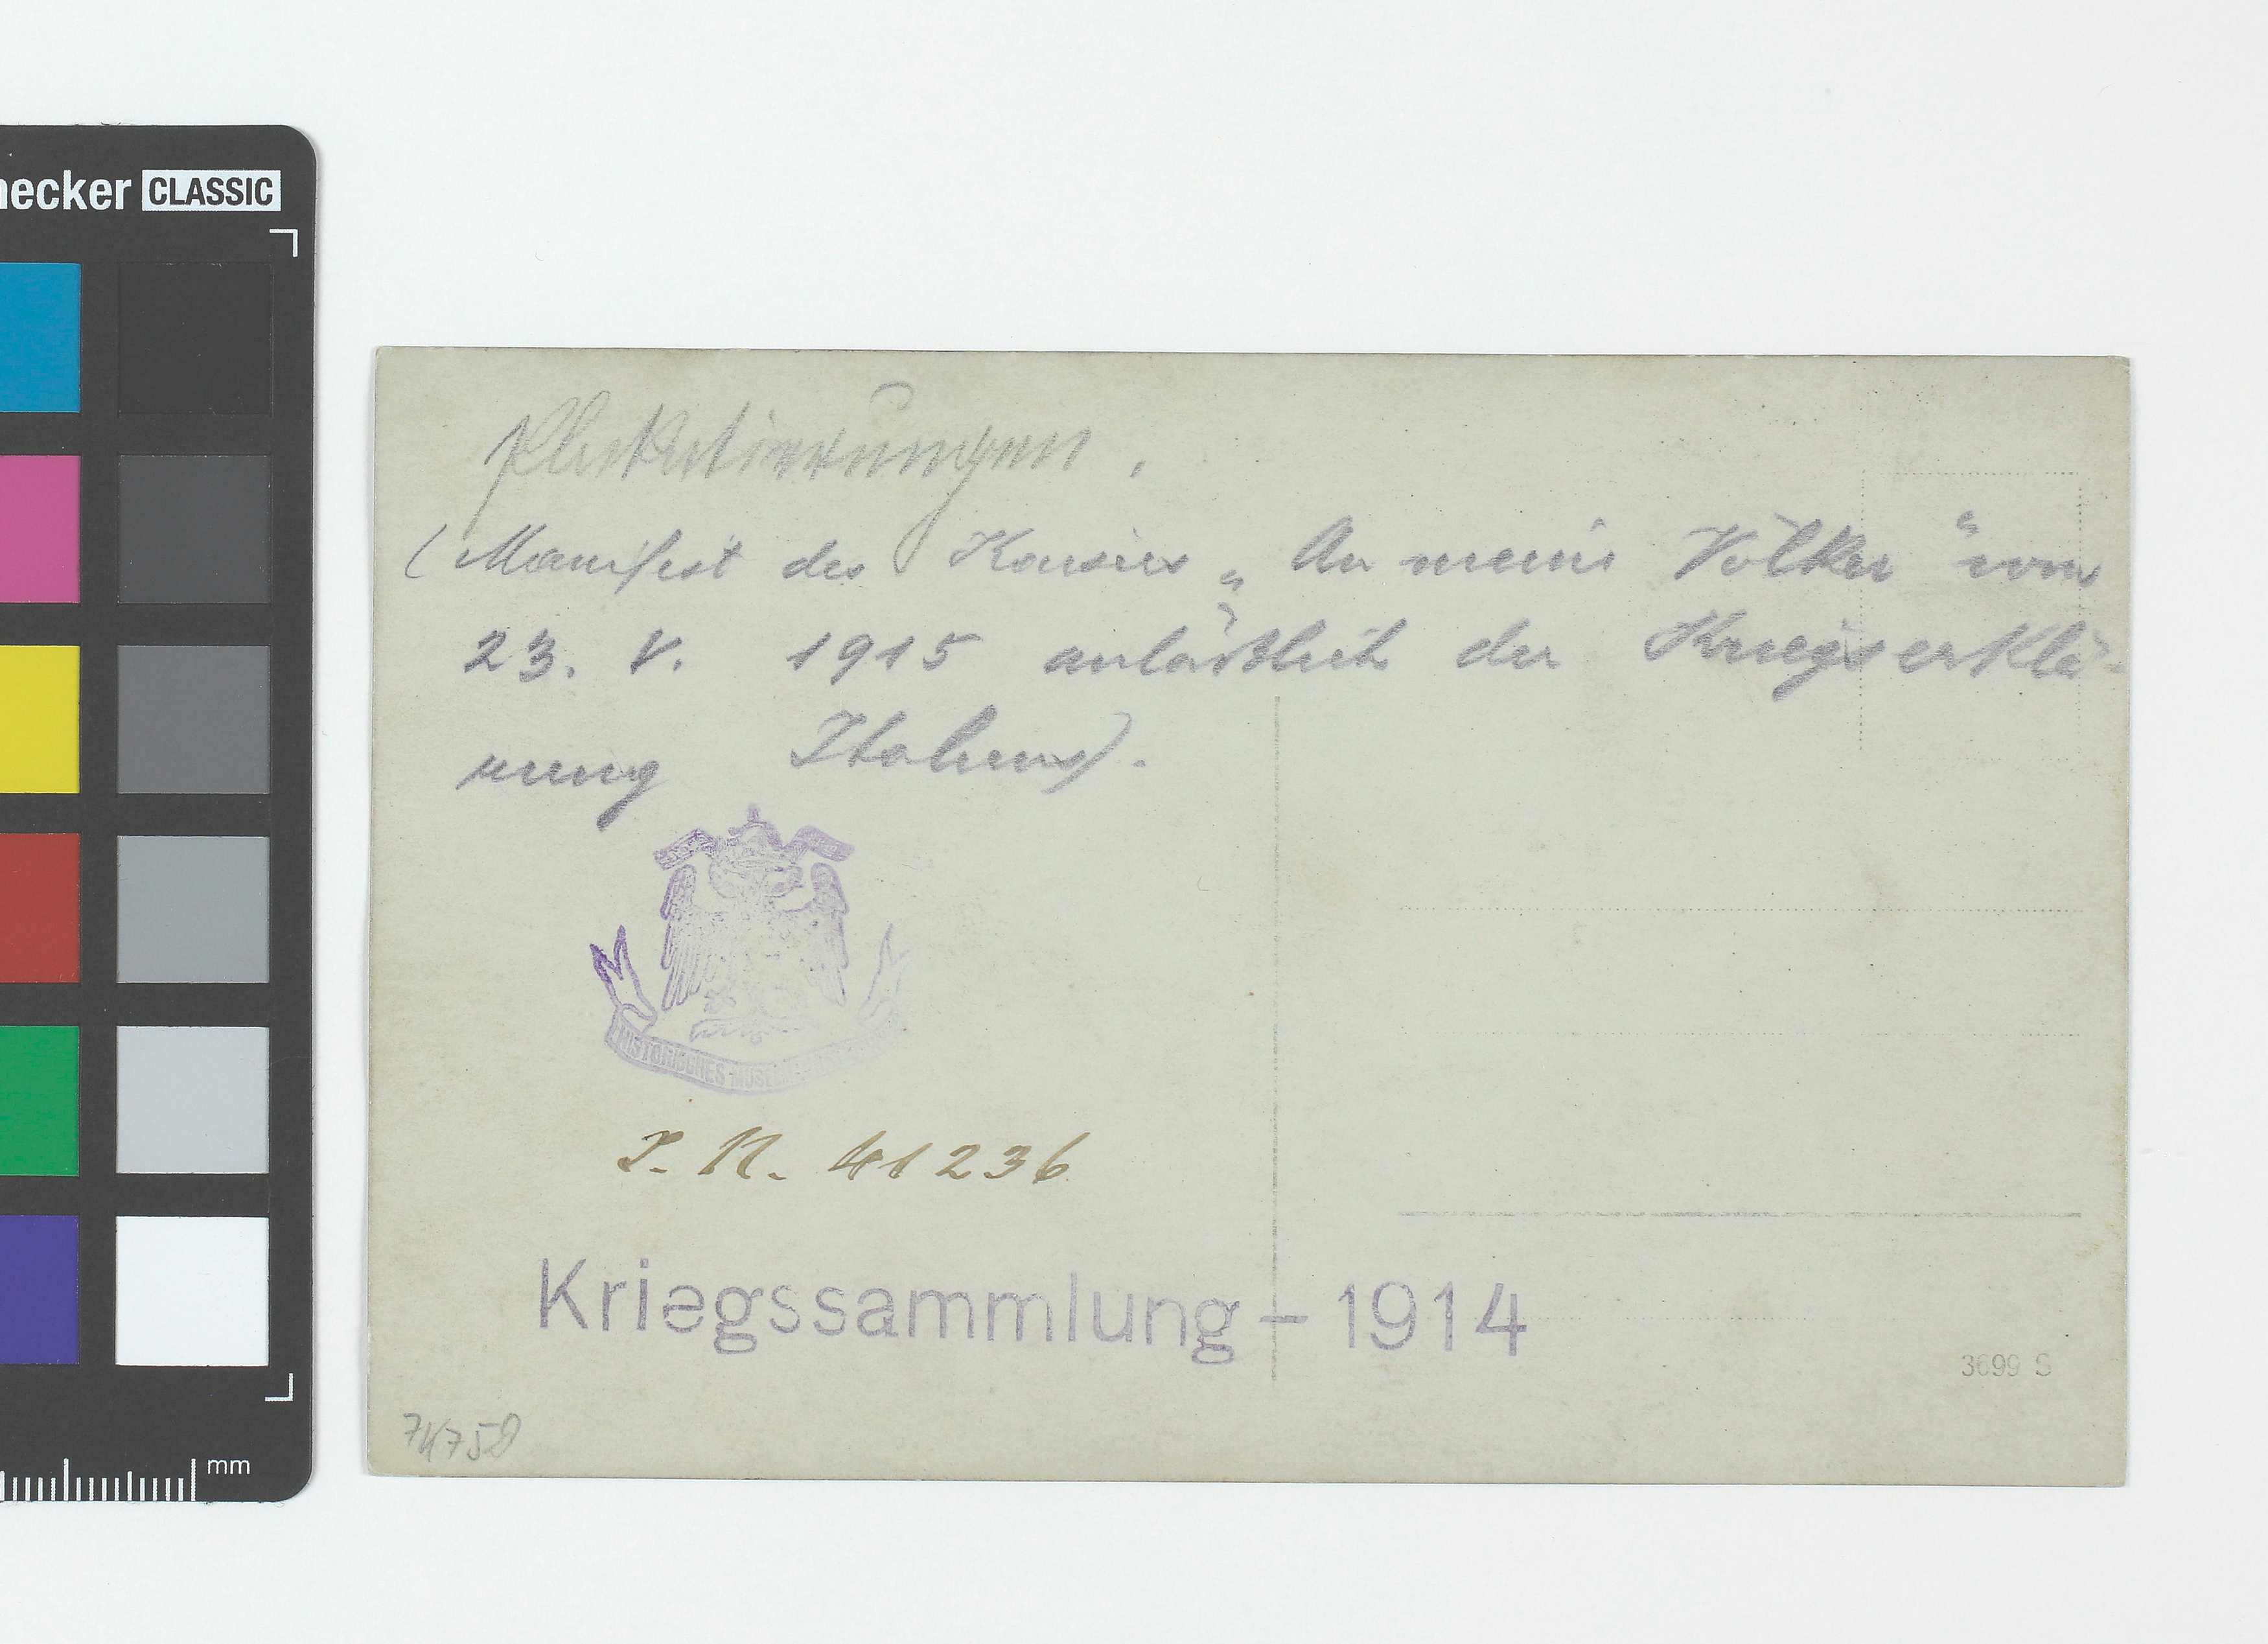 necker CLASSIC
Plakatierungen.
(Manifest des Kaisers „An meine Völker“ vom
23. V. 1915 anläßlich der Kriegserklä-
rung Italiens).
HISTORISCHES MUSEUM
I. N. 41236
Kriegssammlung – 1914
3699 S
74758
mm